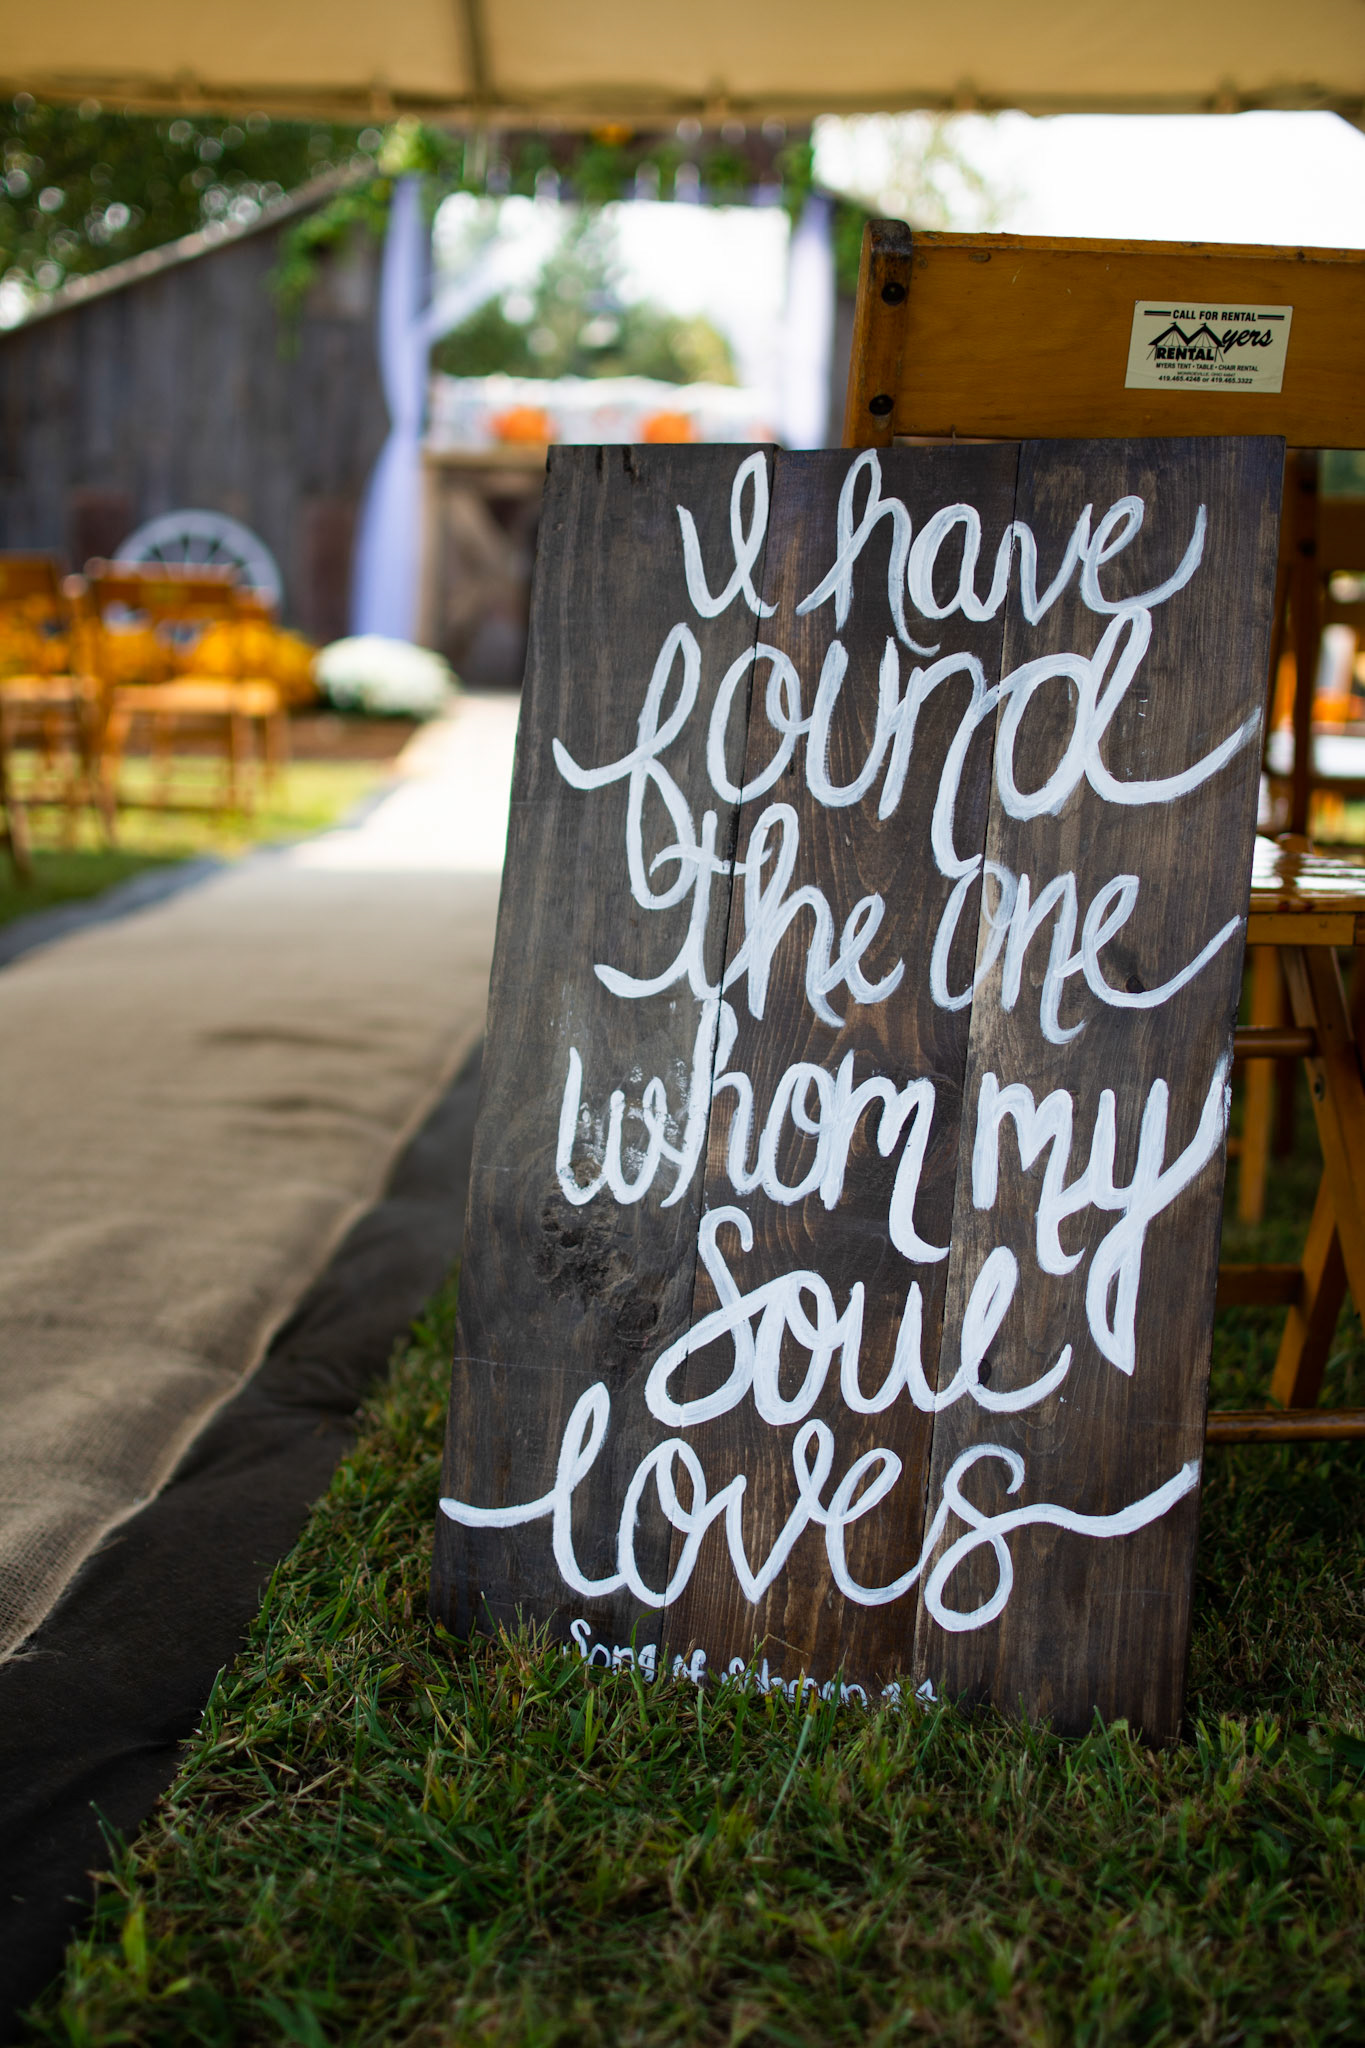 CALL FOR RENTAL
Myers
RENTAL
MYERS TENT • TABLE • CHAIR RENTAL
MONROEVILLE, OHIO 44847
419.465.4248 or 419.465.3322
I have
found
the one
whom my
soul
loves
Song of Solomon